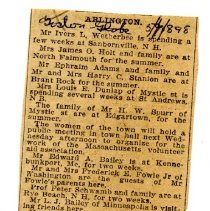 ARLINGTON.
Boston Globe 8/7/1898
Mr Ivers L. Wetherbee is spending a
few weeks at Sanbornville, N. H.
Mr James O. Holt and family are at
North Falmouth for the summer.
Mr Ephraim Adams and family and
Mr and Mrs Harry C. Stanion are at
Brant Rock for the summer.
Mrs Louis E. Dunlap of Mystic st is
spending several weeks at St Andrews,
N B.
The family of Mr H. W. Spurr of
Mystic st are at Edgartown for the
summer.
The women of the town will hold a
public meeting in town hall next Wed-
nesday afternoon to organize for work
in aid of the Massachusetts volunteer
association.
Mr Edward A. Bailey is at Kenne-
bunkport, Me, for two weeks.
Mr and Mrs Frederick E. Fowle Jr of
Washington are the guests of Mr
Fowle's parents here.
Prof Peter Schwamb and family are at
Rye Beach, N H, for two weeks.
Mr L. J. Bailey of Minneapolis is visit-
ing friends here